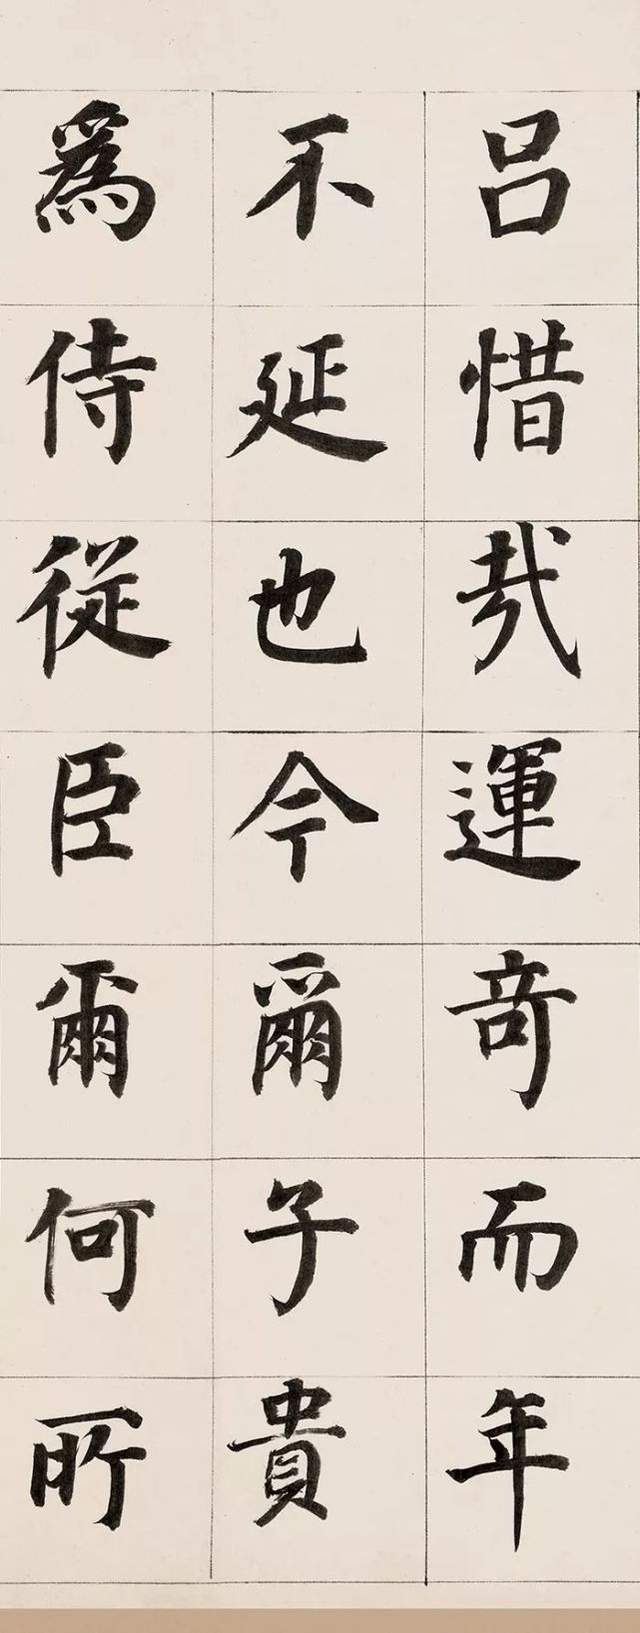 吕惜哉運奇而年
不延也今爾子貴
爲侍從臣爾何所